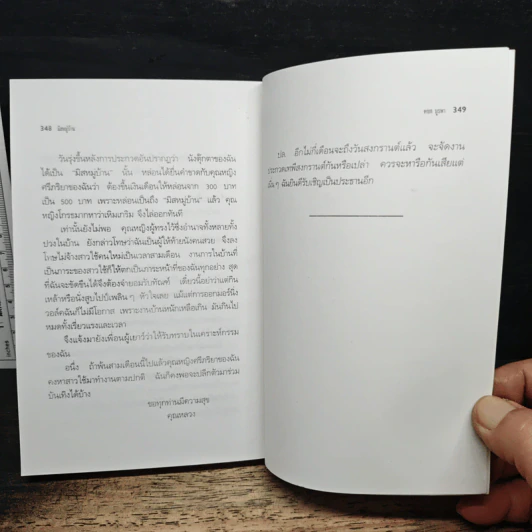 348 มิสหมู่บ้าน
วันรุ่งขึ้นหลังการประกวดอันปรากฏว่า นังตุ๊กตาของฉัน
ได้เป็น "มิสหมู่บ้าน" นั้น หล่อนได้ยื่นคำขาดกับคุณหญิง
ศรีภริยาของฉันว่า ต้องขึ้นเงินเดือนให้หล่อนจาก 300 บาท
เป็น 500 บาท เพราะหล่อนเป็นถึง "มิสหมู่บ้าน" แล้ว คุณ
หญิงโกรธมากหาว่าเหิมเกริม จึงไล่ออกทันที
เท่านั้นยังไม่พอ คุณหญิงผู้ทรงไว้ซึ่งอำนาจทั้งหลายทั้ง
ปวงในบ้าน ยังกล่าวโทษว่าฉันเป็นผู้ให้ท้ายนังคนสวย จึงลง
โทษไม่จ้างสาวใช้คนใหม่เป็นเวลาสามเดือน งานการในบ้านที่
เป็นภาระของสาวใช้ก็ให้ตกเป็นภาระหน้าที่ของฉันทุกอย่าง สุด
ที่ฉันจะขัดขืนได้จึงต้องจำยอมรับทัณฑ์ เดี๋ยวนี้อย่าว่าแต่กิน
เหล้าหรือนั่งสูบไปป์เพลินๆ หัวใจเลย แม้แต่การออกมอร์นิ่ง
วอล์คฉันก็ไม่มีโอกาส เพราะงานบ้านหนักเหลือเกิน มันกินไป
หมดทั้งเรี่ยวแรงและเวลา
จึงแจ้งมายังเพื่อนผู้เยาว์ว่าให้รับทราบในเคราะห์กรรม
ของฉัน
อนึ่ง ถ้าพ้นสามเดือนนี้ไปแล้วคุณหญิงศรีภริยาของฉัน
คงหาสาวใช้มาทำงานตามปกติ ฉันก็คงพอจะปลีกตัวมาร่วม
บันเทิงได้บ้าง
ขอทุกท่านมีความสุข
คุณหลวง
349
ปล. อีกไม่กี่เดือนจะถึงวันสงกรานต์แล้ว จะจัดงาน
ประกวดเทพีสงกรานต์กันหรือเปล่า ควรจะหารือกันเสียแต่
เนิ่นๆ ฉันยินดีรับเชิญเป็นประธานอีก